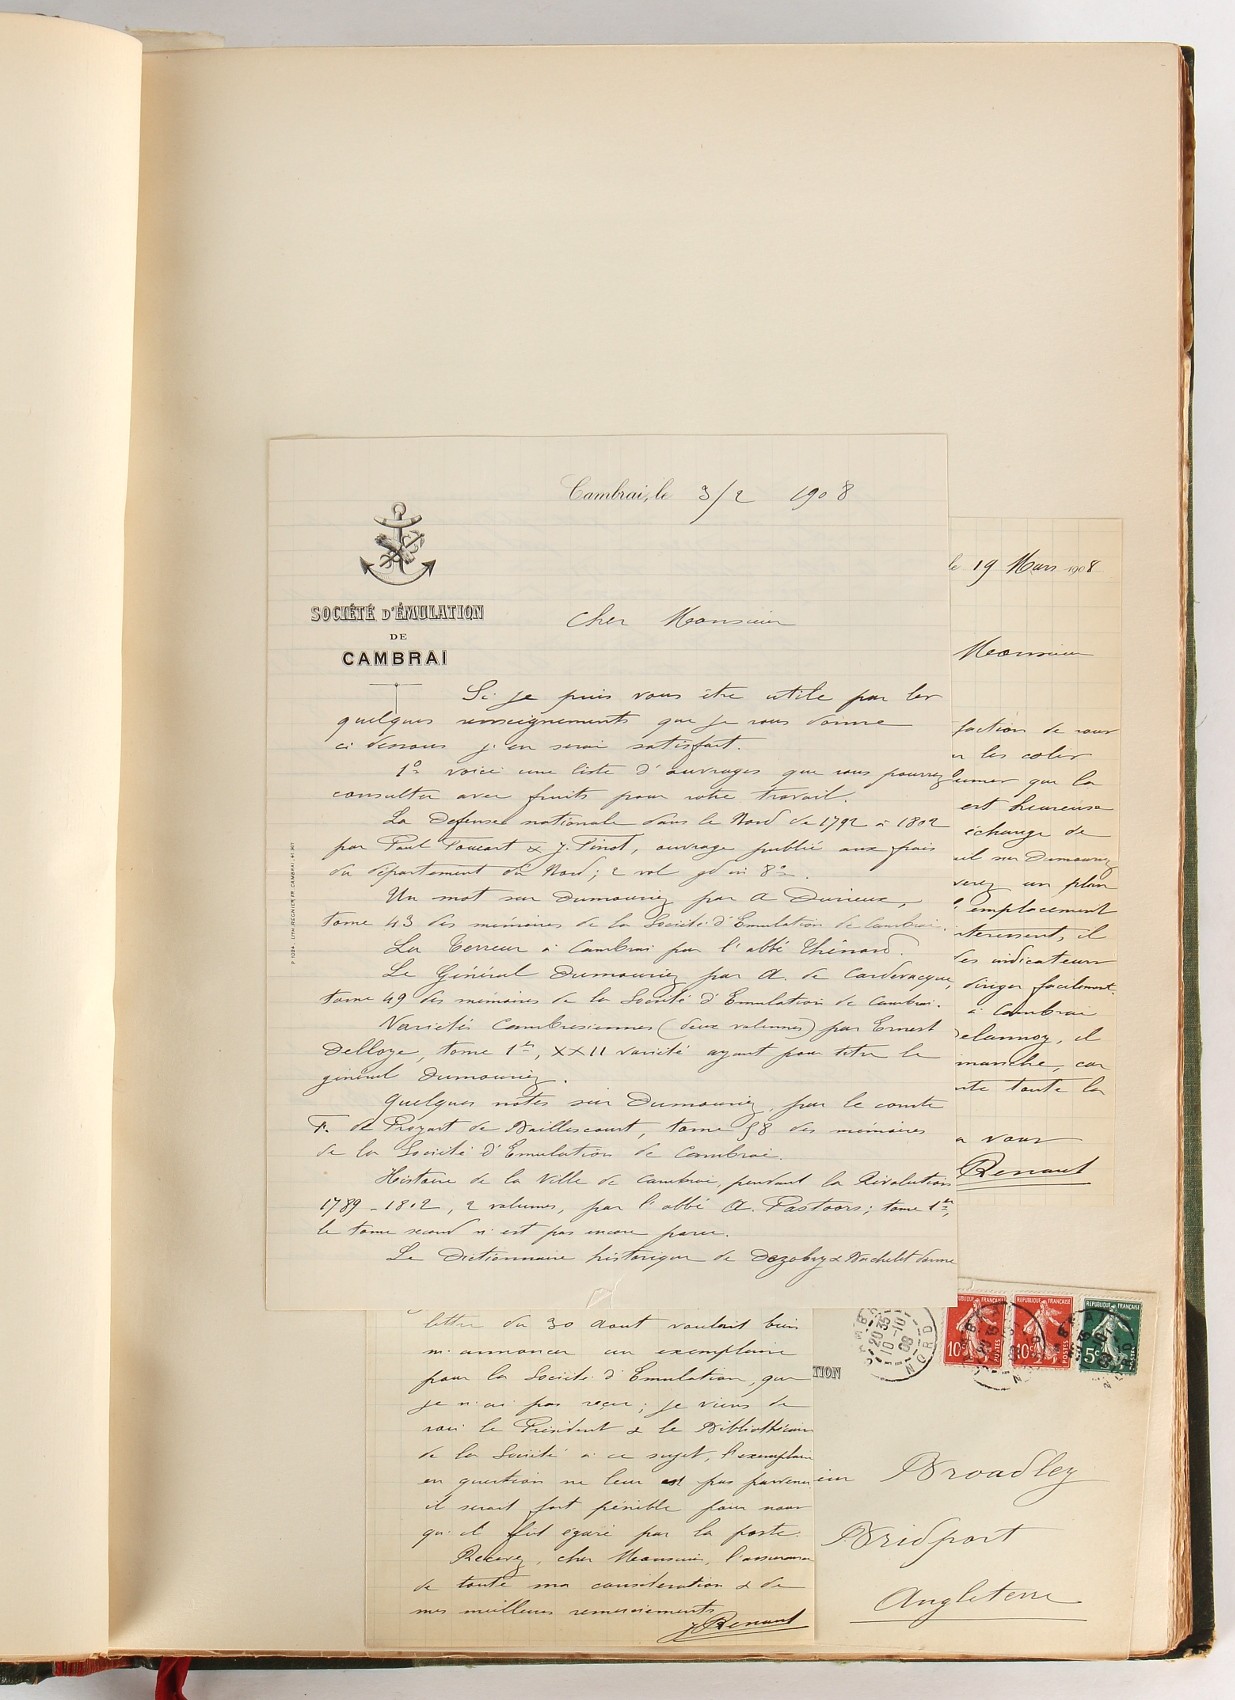 Cambrai, le 3/2 1908
SOCIÉTÉ D'ÉMULATION
DE
CAMBRAI
Cher Monsieur
Si je puis vous être utile par les
quelques renseignements que je vous donne
ci dessous j'en serai satisfait.
1º voici une liste d'ouvrages que vous pourrez
consulter avec fruits pour votre travail.
La Défense nationale dans le Nord de 1792 à 1802
par Paul Foucart & J. Finot, ouvrage publié aux frais
du département du Nord; 2 vol gd in 8º.
Un mot sur Dumouriez par A Durieux,
tome 43 des mémoires de la Société d'Emulation de Cambrai.
La Terreur à Cambrai par l'abbé Thénard.
Le Général Dumouriez par A. de Cardevacque,
tome 49 des mémoires de la Société d'Emulation de Cambrai.
Variétés Cambresiennes (deux volumes) par Ernest
Delloye, tome 1er, XXII variété ayant pour titre le
général Dumouriez.
Quelques notes sur Dumouriez, par le comte
F. de Proyart de Baillescourt, tome 58 des mémoires
de la Société d'Emulation de Cambrai.
Histoire de la Ville de Cambrai, pendant la Révolution
1789-1802, 2 volumes, par l'abbé A. Pastoors; tome 1er,
le tome second n'est pas encore paru.
Le Dictionnaire historique de Dezobry & Bachelet donne
le 19 Mars 1908
Monsieur
faction de vous
les colis
que la
est heureuse
échange de
sur Dumouriez
verez un plan
l'emplacement
intéressent, il
des indicateurs
diriger facilement.
à Cambrai
Delannoy, il
manche, car
toute la
a vous
Renaut
lettre du 30 aout voulait bien
m'annoncer un exemplaire
pour la Société d'Emulation, que
je n'ai pas reçu; je viens de
voir le Président & le Bibliothécaire
de la Société à ce sujet, l'exemplaire
en question ne leur est pas parvenu
il serait fort pénible pour nous
qu'il fut égaré par la poste.
Recevez, cher Monsieur, l'assurance
de toute ma considération & de
mes meilleurs remerciements
Renaut
TION
20 35
10-10
08
NORD
REPUBLIQUE FRANÇAISE
10c
REPUBLIQUE FRANÇAISE
10c
POSTES
REPUBLIQUE FRANÇAISE
5c
Broadley
Bridport
Angleterre